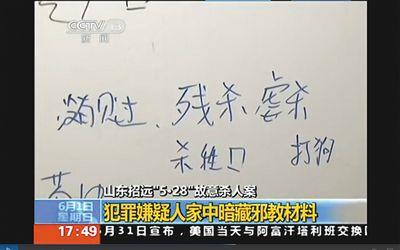 CCTV 13
新闻
见过. 残杀 虐杀
杀牲口 打狗
山东招远“5·28”故意杀人案
6月1日
星期日
犯罪嫌疑人家中暗藏邪教材料
17:49 月31日宣布，美国当天与阿富汗塔利班交换